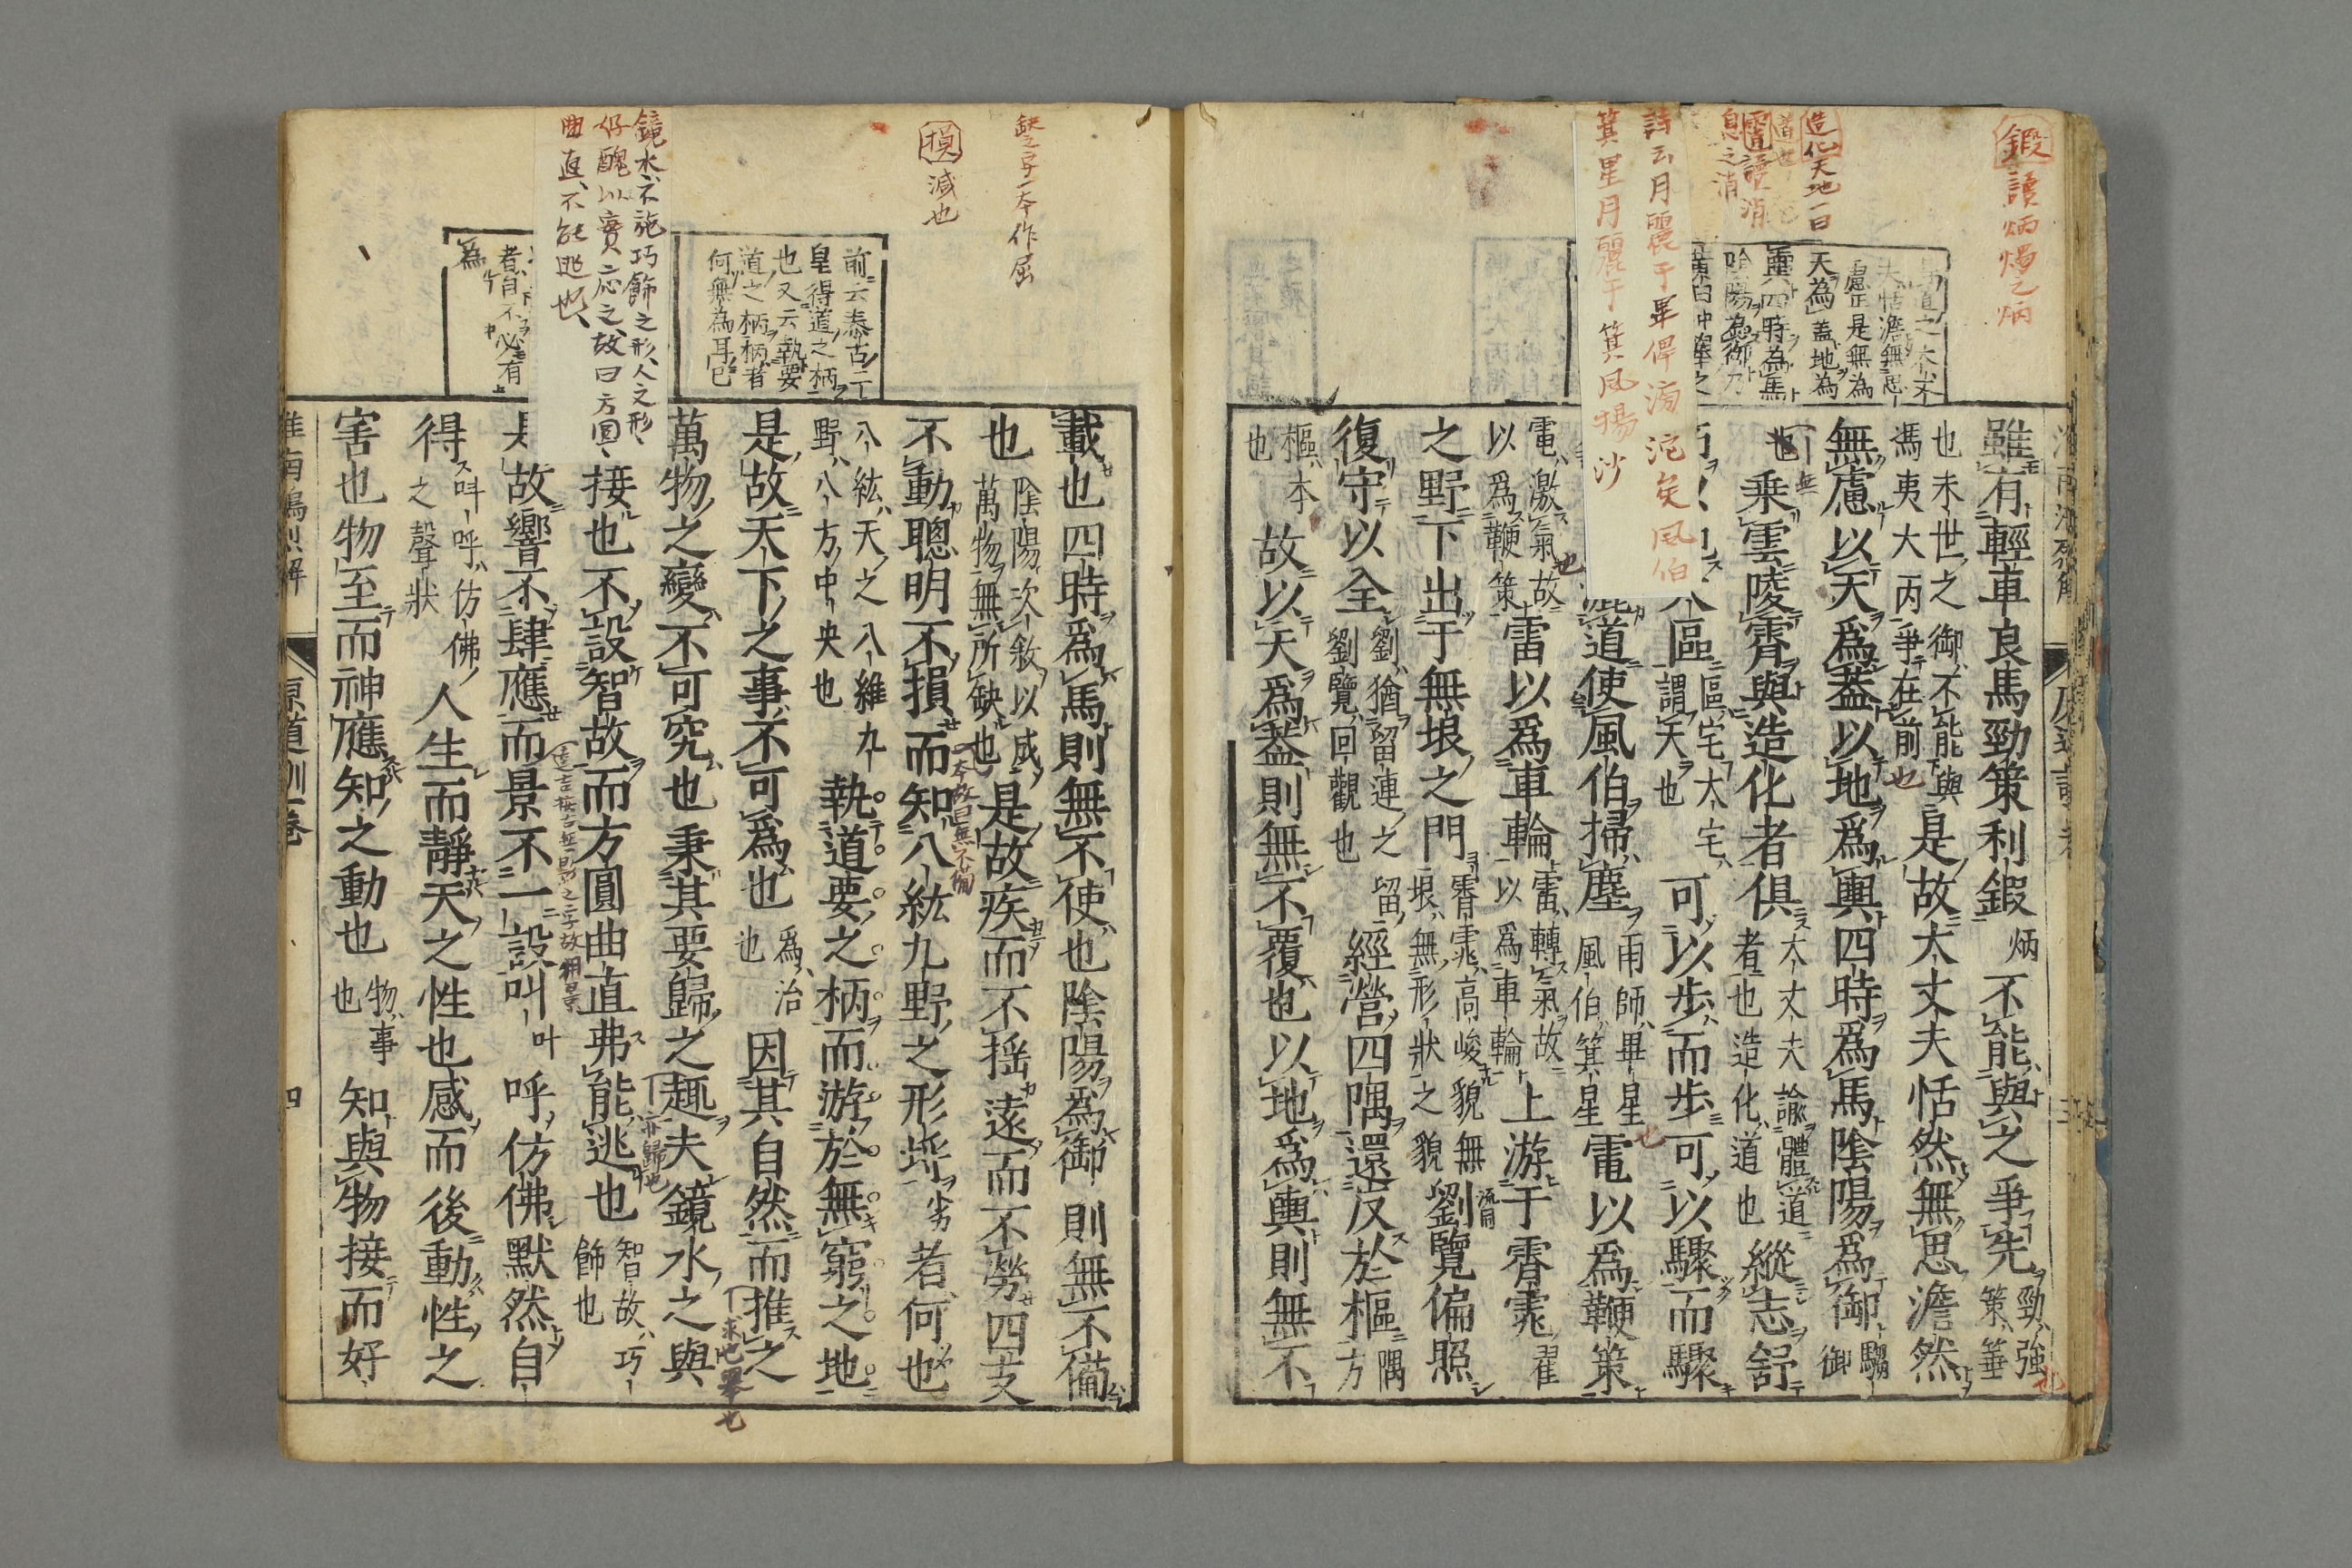 鍛讀炳燭之炳
造化天地一曰
道也
霄讀消
息之消
詩云月麗于畢俾滂沱矣風伯
箕星月麗于箕風揚沙
夫恬澹無思
慮正是無為
天為蓋地為
輿四時為馬
陰陽為御乃
雖有輕車良馬勁策利鍛炳不能與之爭先勁強策箠
也末世之御不能與
馮夷大丙爭在前也是故大丈夫恬然無思澹然
無慮以天爲蓋以地爲輿四時爲馬陰陽爲御騶御
也乘雲陵霄與造化者俱大丈夫諭體道者也造化道也縱志舒
區區宅大宅謂天也可以步而步可以驟而驟
道使風伯掃塵雨師畢星風伯箕星也電以爲鞭策
電激氣故以爲鞭策也雷以爲車輪雷轉氣故以爲車輪上游于霄雿
之野下出于無垠之門霄雿高峻貌無垠無形狀之貌劉覽偏照
復守以全劉猶留連之留劉覽回觀也經營四隅還反於樞隅方
樞本也故以天爲蓋則無不覆也以地爲輿則無不
墼字一本作屈
損減也
鏡水不施巧飾之形人之形
好醜以實應之故曰方圓
曲直不能逃也
前云泰古二
皇得道之柄
也又云執要
道之柄柄者
何無為耳已
者自不必有
為
載也四時爲馬則無不使也陰陽爲御則無不備
也陰陽次敘以成萬物無所缺也是故疾而不搖遠而不勞四支
不動聰明不損而知八紘九野之形埒者何也
八紘天之八維九野八方中央也執道要之柄而游於無窮之地
是故天下之事不可爲也爲治也因其自然而推之
萬物之變不可究也秉其要歸之趣夫鏡水之與
接也不設智故而方圓曲直弗能逃也智故巧飾也
是故響不肆應而景不一設叫呼仿佛默然自
得叫呼仿佛之聲狀人生而靜天之性也感而後動性之
害也物至而神應知之動也物事也知與物接而好
淮南鴻烈解 原道訓卷 四